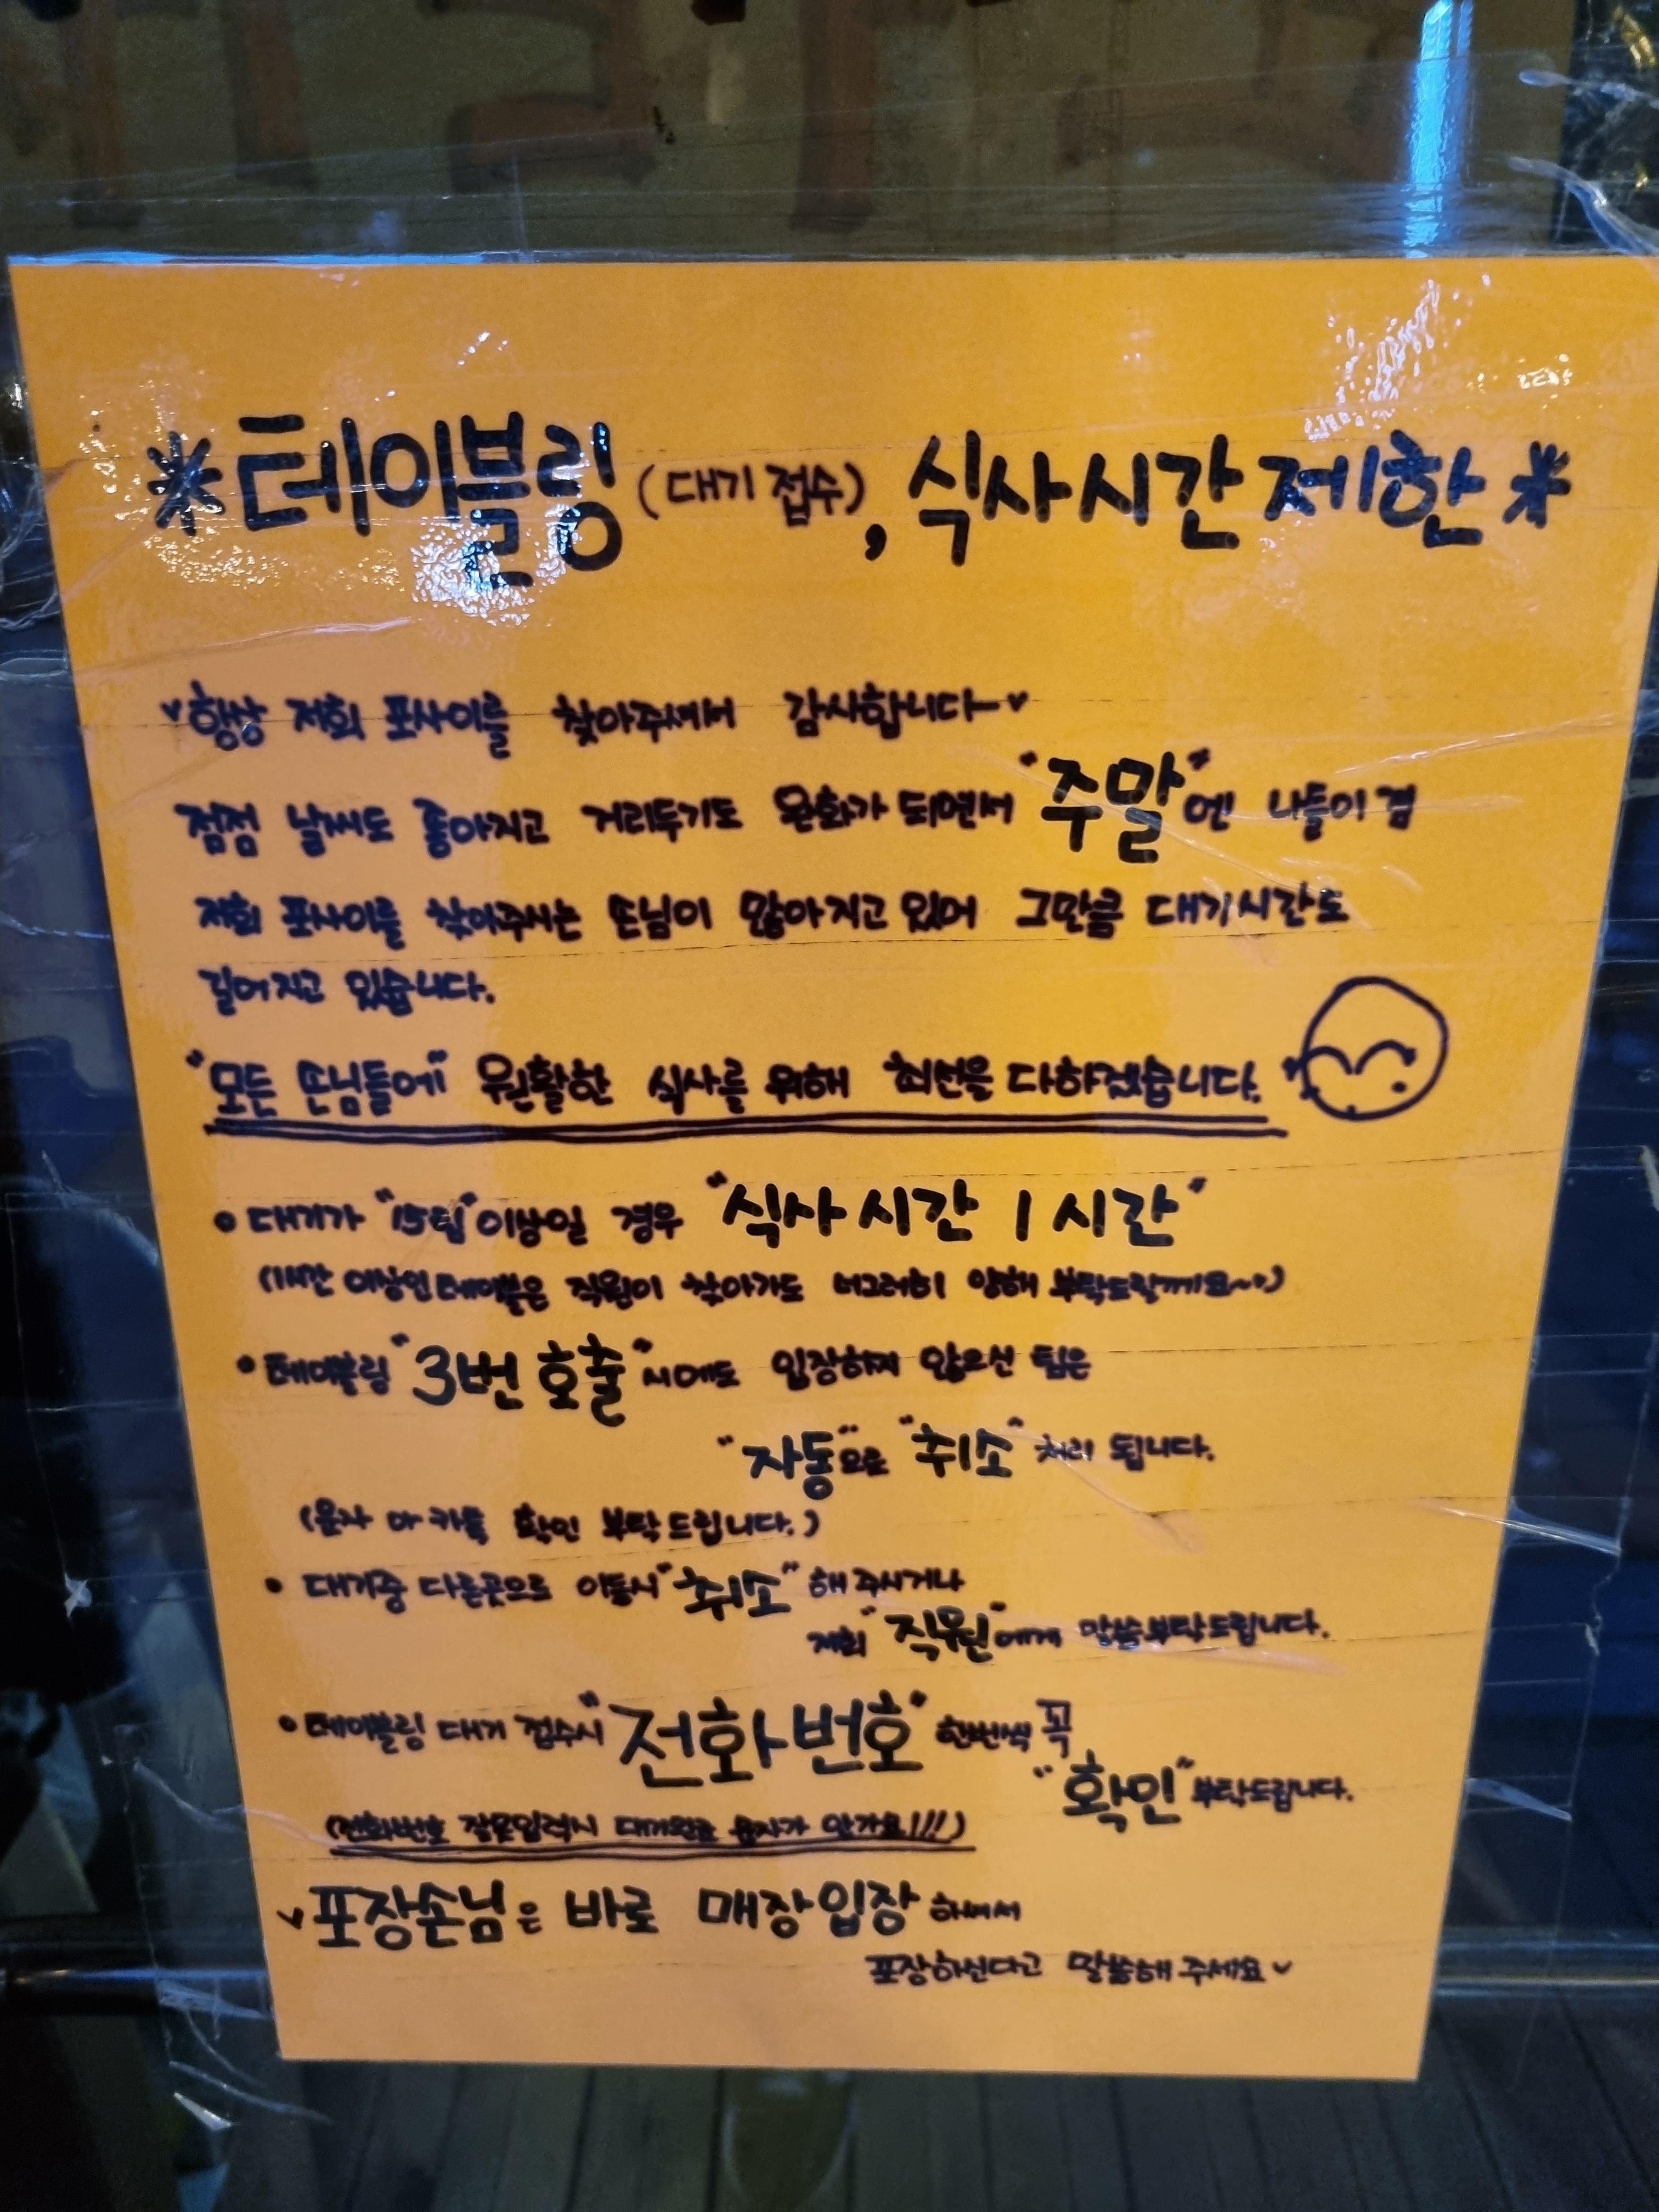 *테이블링(대기 접수), 식사시간 제한*
항상 저희 포사이를 찾아주셔서 감사합니다~
점점 날씨도 좋아지고 거리두기도 완화가 되면서 "주말"엔 나들이 겸
저희 포사이를 찾아주시는 손님이 많아지고 있어 그만큼 대기시간도
길어지고 있습니다.
"모든 손님들에" 원활한 식사를 위해 최선을 다하겠습니다.
• 대기가 "15팀"이상일 경우 "식사 시간 1시간"
(1시간 이상인 테이블은 직원이 찾아가도 너그러히 양해 부탁드릴께요~)
• 테이블링 "3번 호출"시에도 입장하지 않으신 팀은
"자동"으로 "취소" 처리 됩니다.
(문자 or 카톡 확인 부탁드립니다.)
• 대기중 다른곳으로 이동시 "취소" 해 주시거나
저희 "직원"에게 말씀부탁드립니다.
• 테이블링 대기 접수시 "전화번호" 한번씩 꼭
"확인" 부탁드립니다.
(전화번호 잘못입력시 대기완료 문자가 안가요!!!)
포장손님은 바로 매장입장 하셔서
포장하신다고 말씀해 주세요